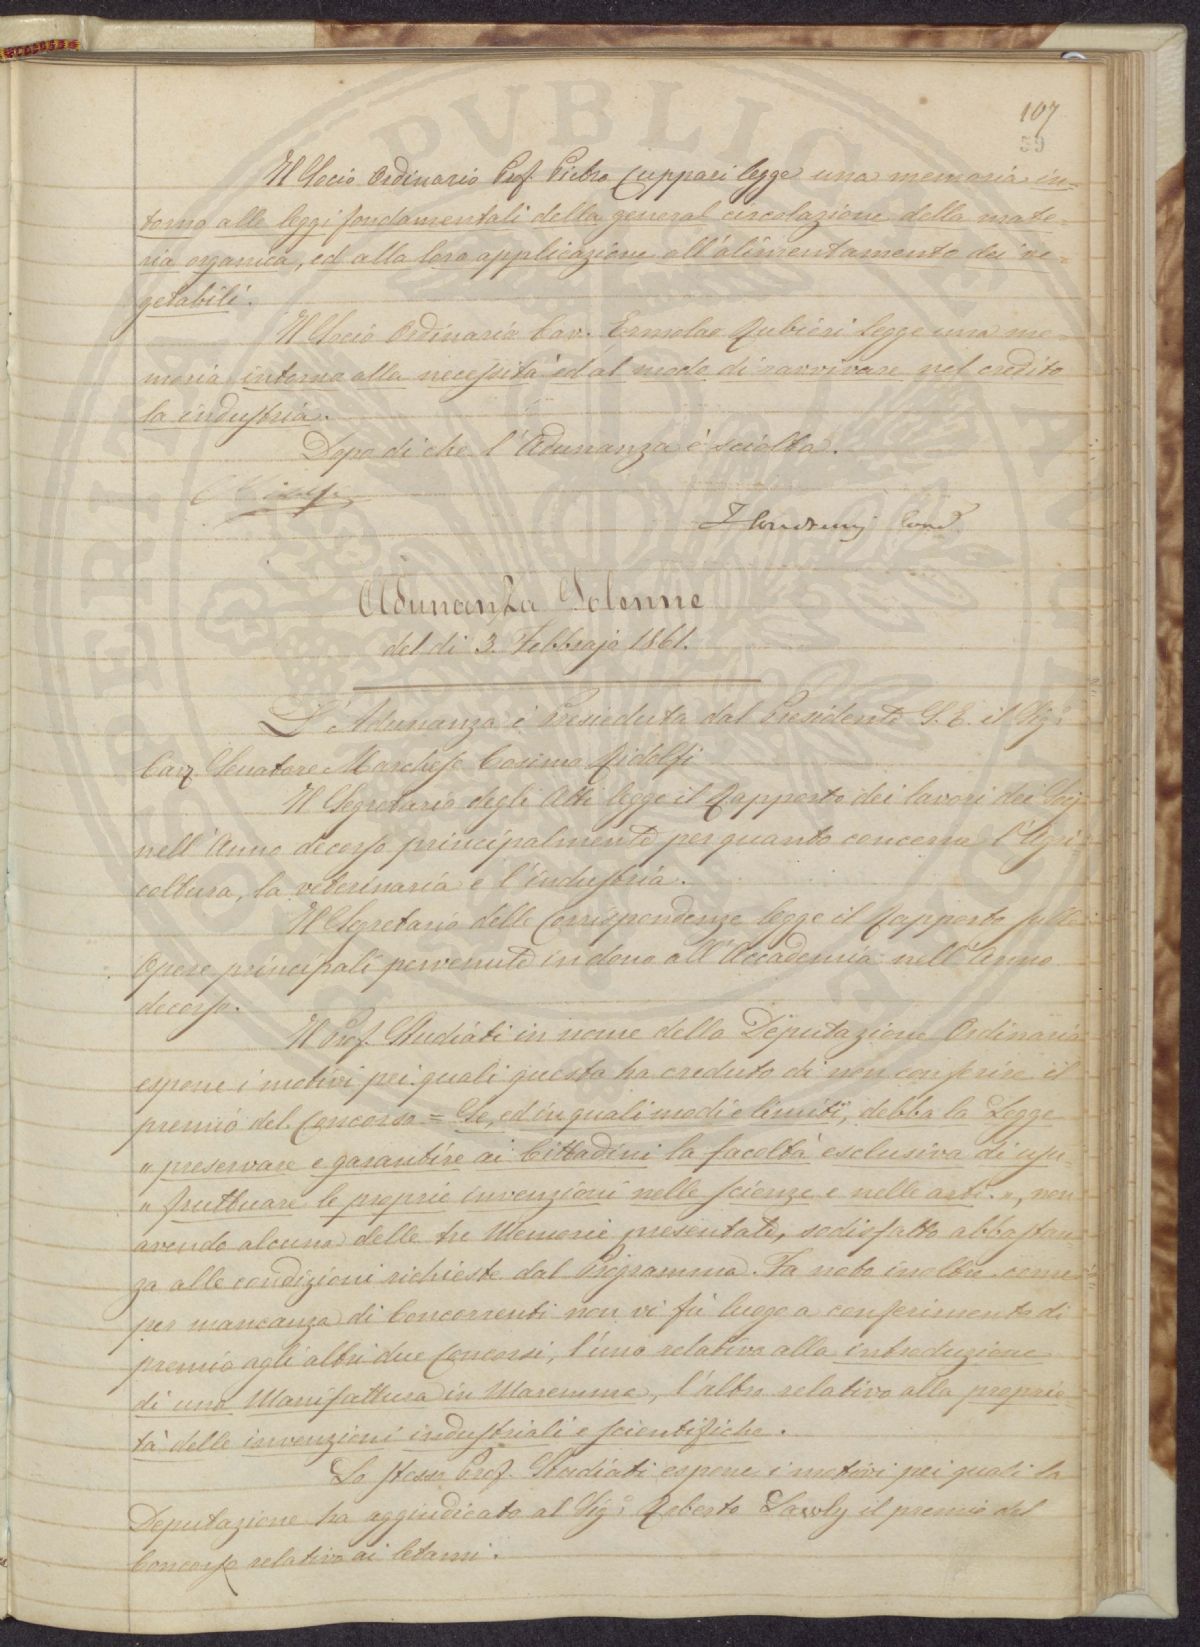 107
59
Il Socio Ordinario Prof. Pietro Cuppari legge una memoria in-
torno alle leggi fondamentali della general circolazione della mate-
ria organica, ed alla loro applicazione all'alimentamento dei ve-
getabili.
Il Socio Ordinario Cav. Ermolao Rubieri legge una me-
moria intorno alla necessità ed al modo di ravvivare nel credito
la industria.
Dopo di che l'Adunanza è sciolta.
Adunanza Solenne
del dì 3. Febbrajo 1861.
L'Adunanza è Presieduta dal Presidente S. E. il Sig.
Cav. Senatore Marchese Cosimo Ridolfi
Il Segretario degli Atti legge il Rapporto dei lavori dei Socj
nell'Anno decorso principalmente per quanto concerne l'Agri-
coltura, la veterinaria e l'industria.
Il Segretario delle Corrispondenze legge il Rapporto sulle
Opere principali pervenute in dono all'Accademia nell'Anno
decorso.
Il Prof. Studiati in nome della Deputazione Ordinaria
espone i motivi pei quali questa ha creduto di non conferire il
premio del Concorso = Se, ed in quali modi e limiti, debba la Legge
" preservare e garantire ai Cittadini la facoltà esclusiva di usu-
" fruttuare le proprie invenzioni nelle scienze e nelle arti. ", non
avendo alcuna delle tre Memorie presentate, sodisfatto abbastan-
za alle condizioni richieste dal Programma. Fa noto inoltre come
per mancanza di Concorrenti non vi fù luogo a conferimento di
premio agli altri due Concorsi, l'uno relativo alla introduzione
di una Manifattura in Maremma, l'altro relativo alla proprie-
tà delle invenzioni industriali e scientifiche.
Lo stesso Prof. Studiati espone i motivi pei quali la
Deputazione ha aggiudicato al Sig. Roberto Lawly il premio del
Concorso relativo ai letami.